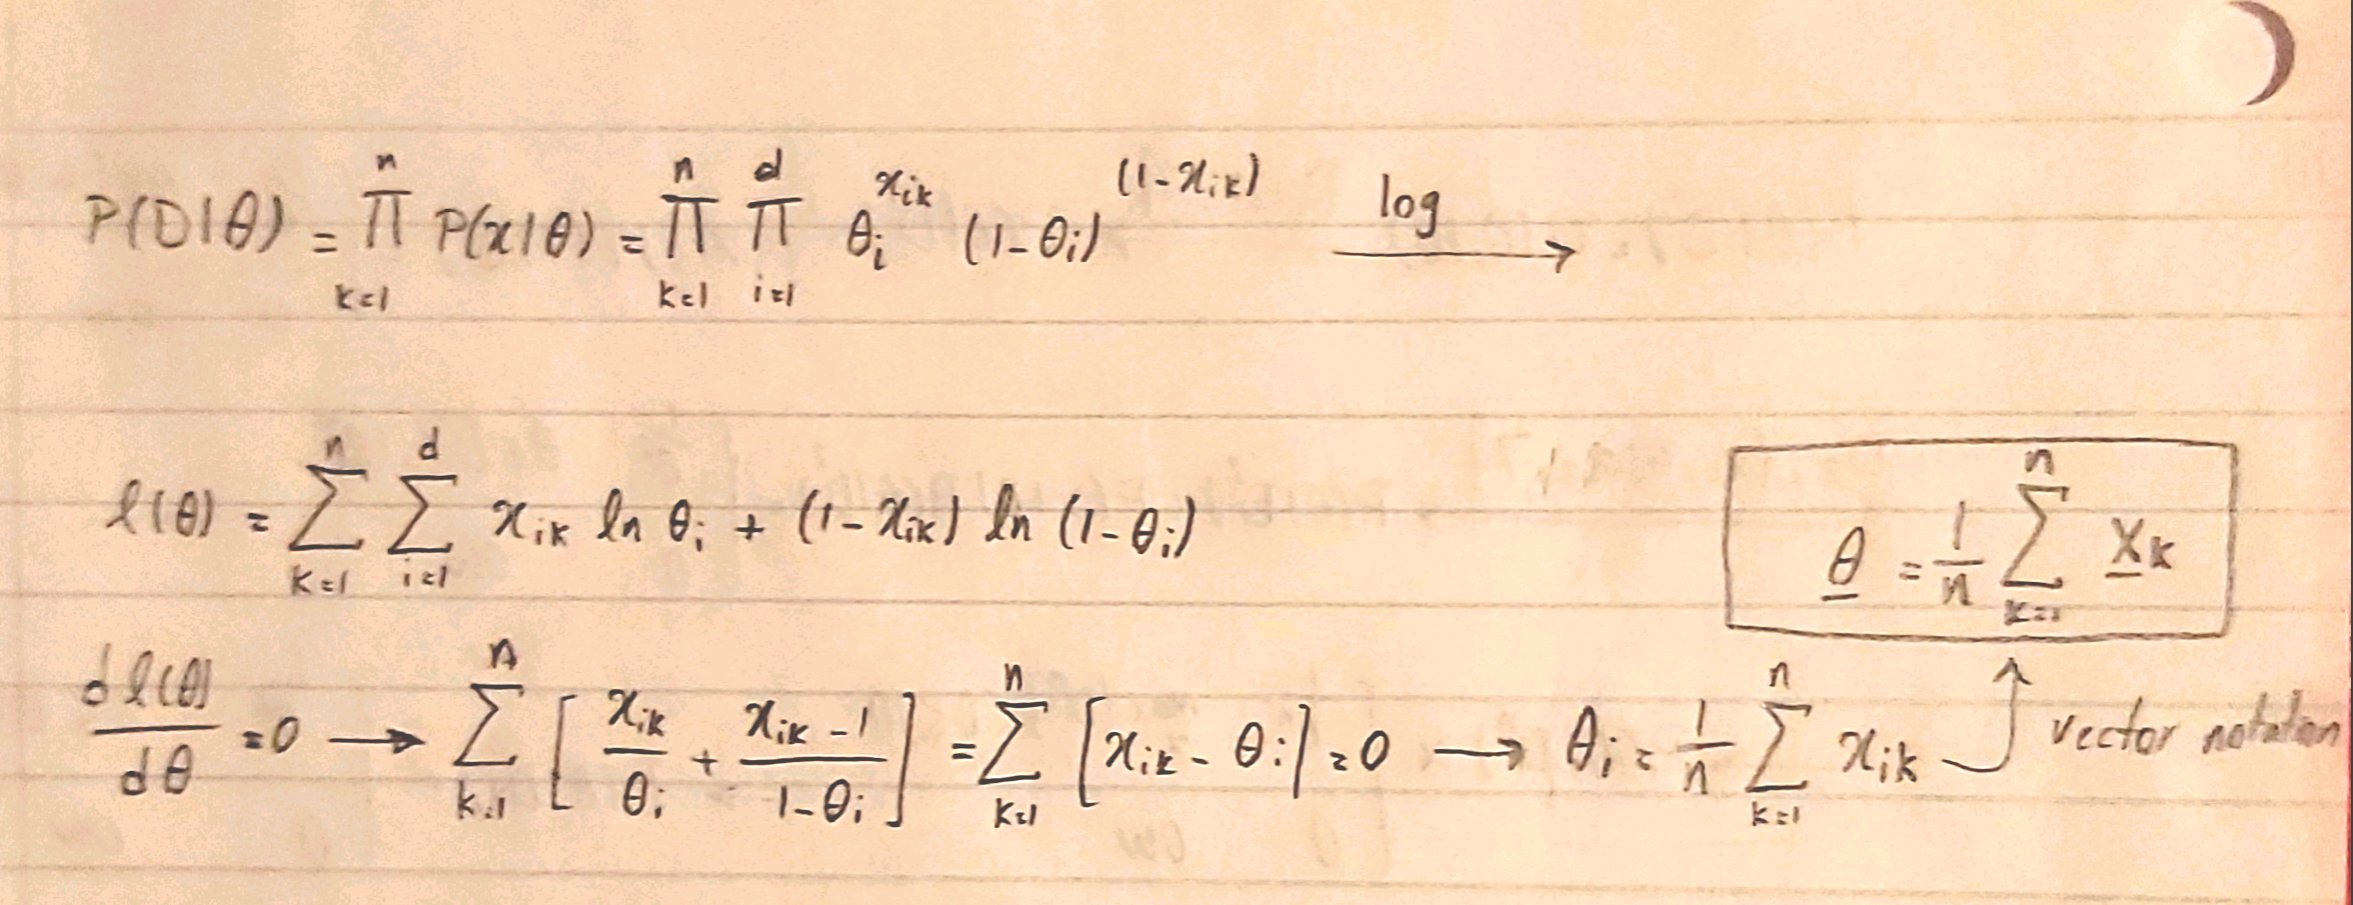 P(D|θ) = ∏_{k=1}^{n} P(x|θ) = ∏_{k=1}^{n} ∏_{i=1}^{d} θ_i^{x_{ik}} (1-θ_i)^{(1-x_{ik})} log →
l(θ) = ∑_{k=1}^{n} ∑_{i=1}^{d} x_{ik} ln θ_i + (1-x_{ik}) ln (1-θ_i)
θ = 1/n ∑_{k=1}^{n} X_k
dl(θ)/dθ = 0 → ∑_{k=1}^{n} [x_{ik}/θ_i + (x_{ik}-1)/(1-θ_i)] = ∑_{k=1}^{n} [x_{ik} - θ_i] = 0 → θ_i = 1/n ∑_{k=1}^{n} x_{ik} vector notation